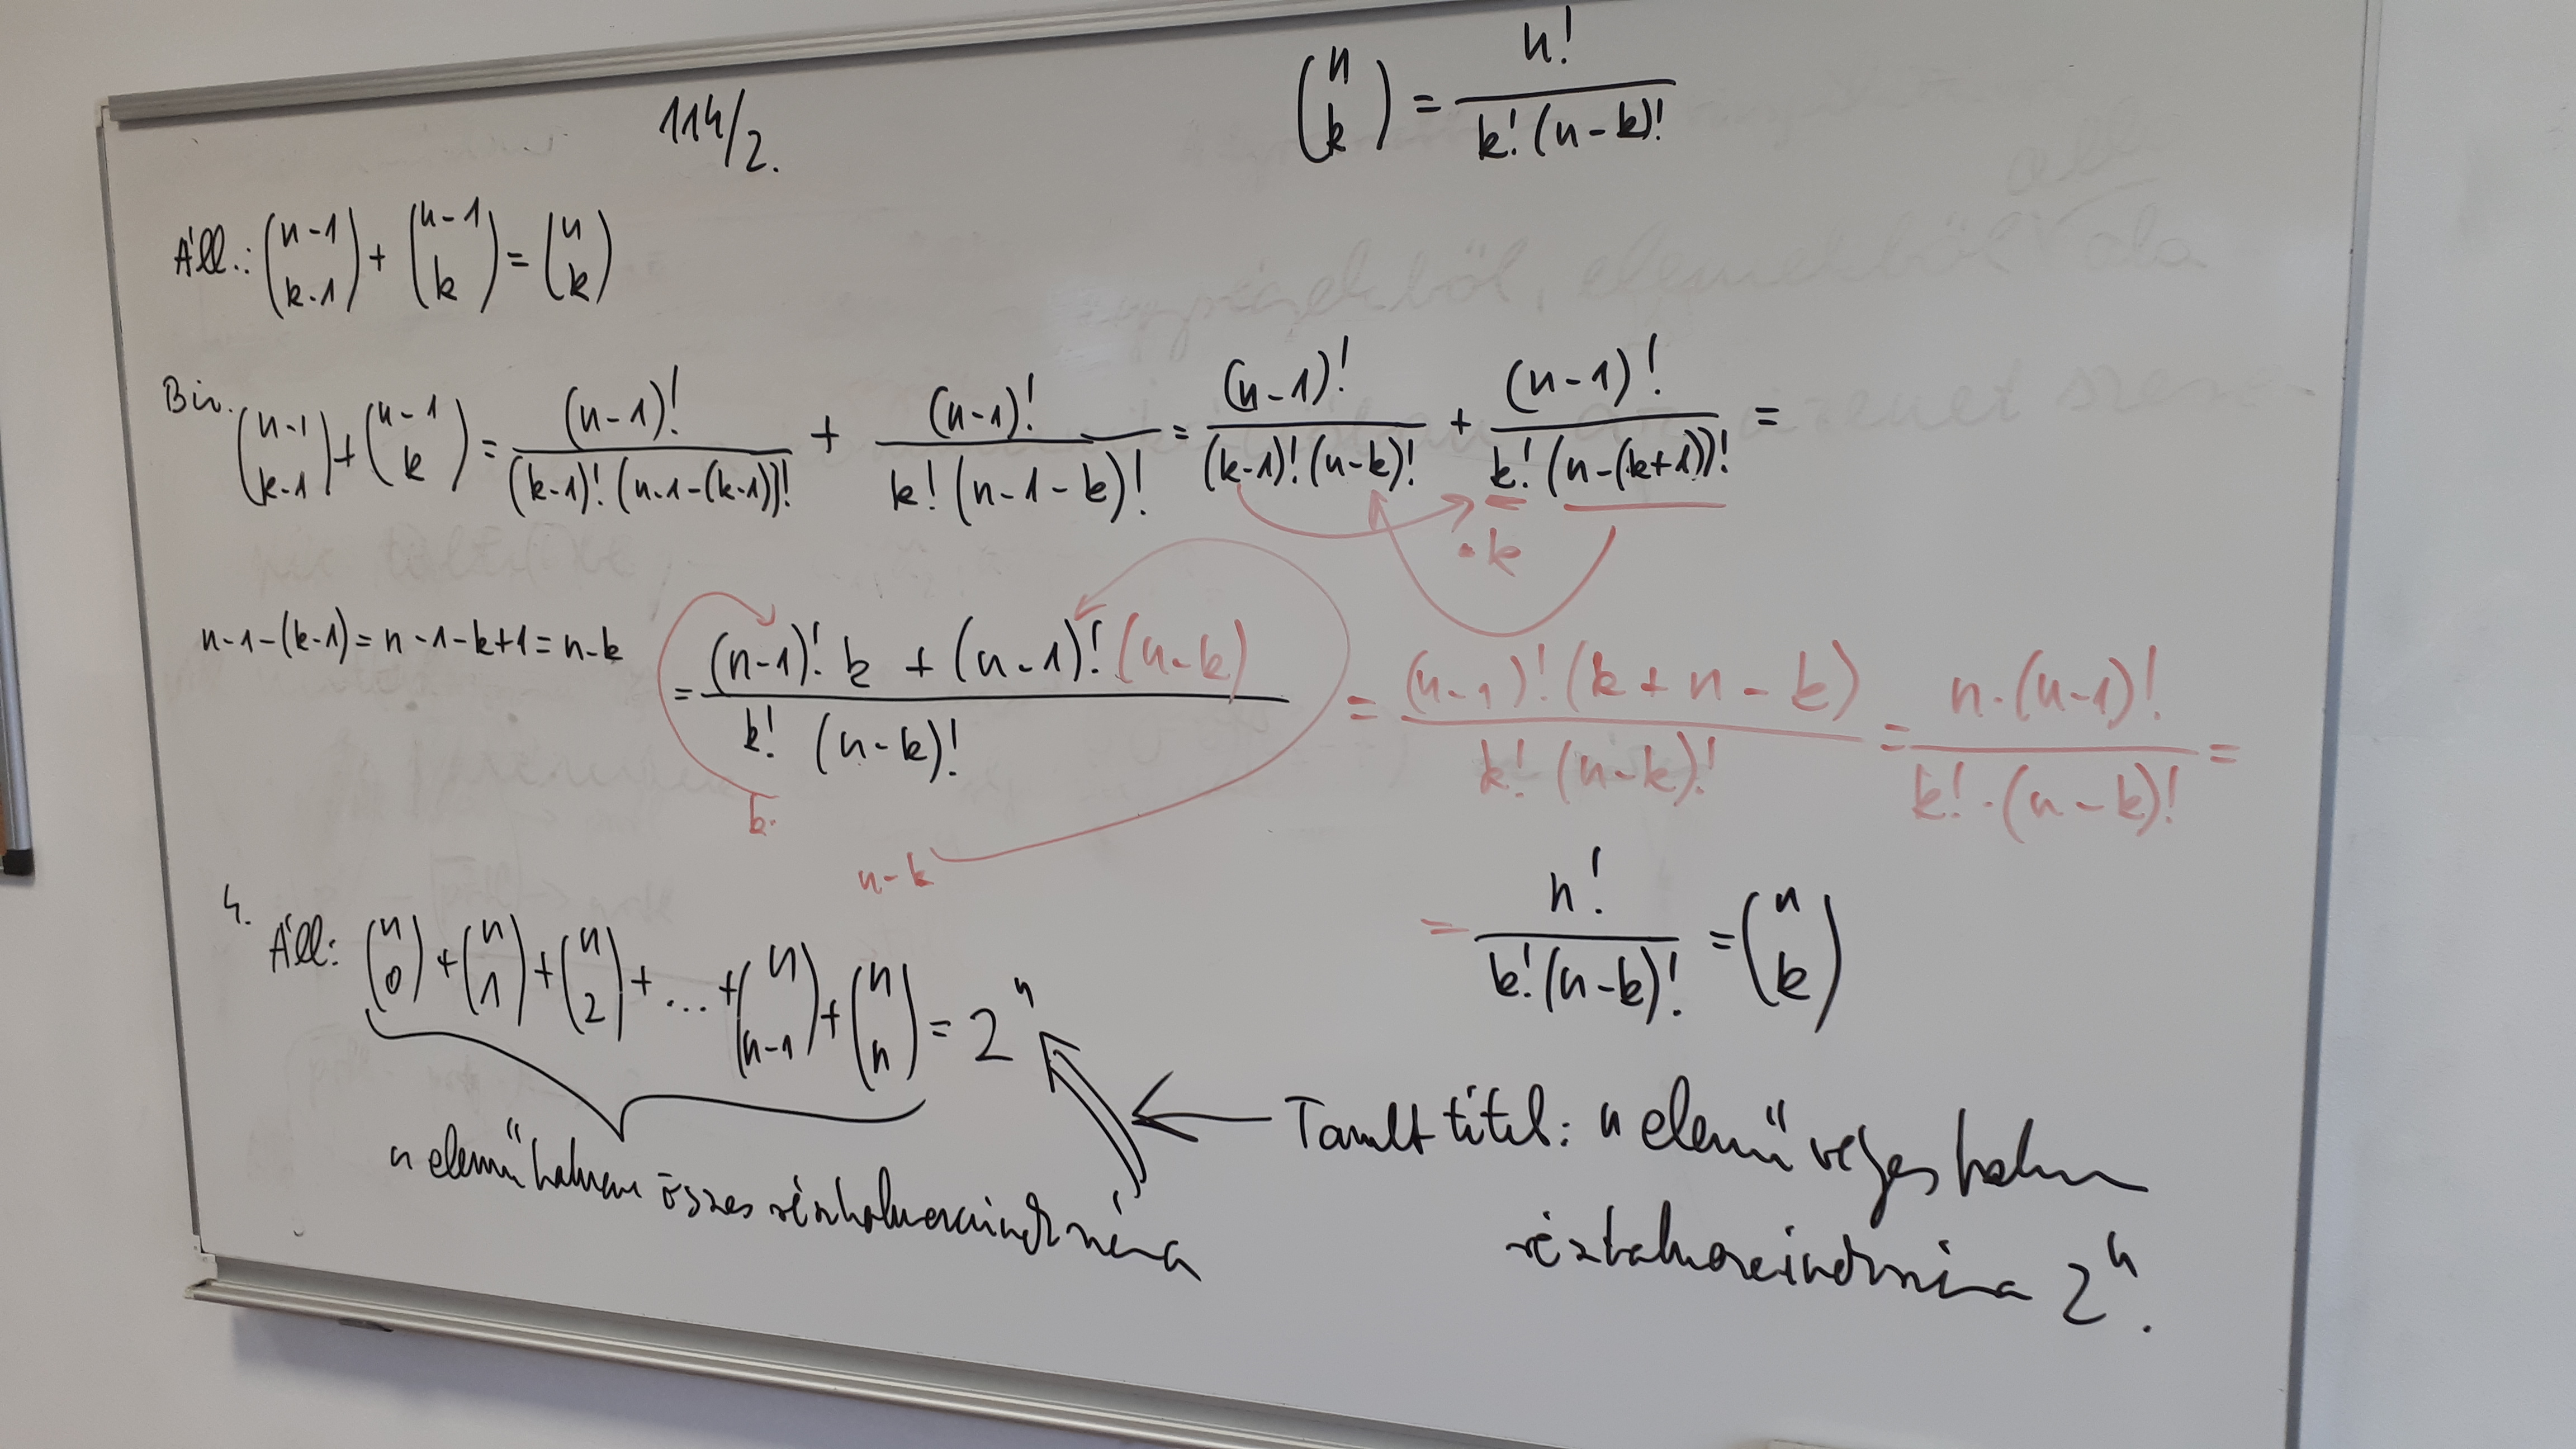 114/2.
(n k) = n! / k!(n-k)!
Áll.: (n-1 k-1) + (n-1 k) = (n k)
Biz. (n-1 k-1) + (n-1 k) = (n-1)! / (k-1)!(n-1-(k-1))! + (n-1)! / k!(n-1-k)! = (n-1)! / (k-1)!(n-k)! + (n-1)! / k!(n-(k+1))! =
·k
n-1-(k-1) = n-1-k+1 = n-k
= (n-1)! k + (n-1)! (n-k) / k! (n-k)! = (n-1)! (k+n-k) / k! (n-k)! = n·(n-1)! / k!·(n-k)! =
k·
n-k
= n! / k!(n-k)! = (n k)
4. Áll: (n 0) + (n 1) + (n 2) + ... + (n n-1) + (n n) = 2^n
n elemű halmaz összes részhalmazainak száma
Tanult tétel: n elemű véges halmaz
részhalmazainak száma 2^n.